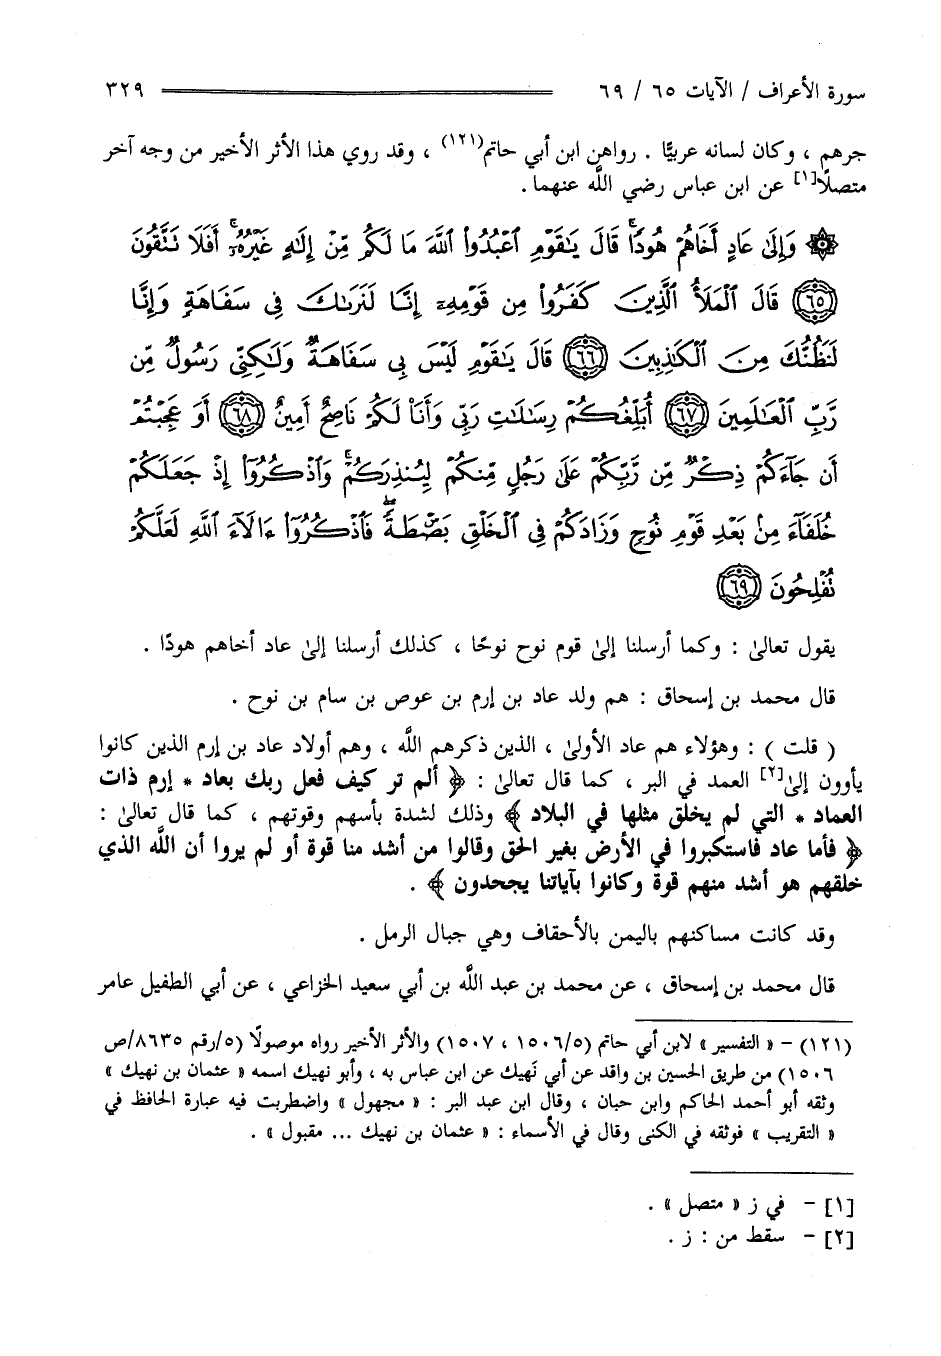 سورة الأعراف / الآيات ٦٥ / ٦٩ ٣٢٩
جرهم ، وكان لسانه عربيًّا . رواهن ابن أبي حاتم(١٢١) ، وقد روي هذا الأثر الأخير من وجه آخر
متصلًا[١] عن ابن عباس رضي اللَّه عنهما .
۞ وَإِلَىٰ عَادٍ أَخَاهُمْ هُودًا ۗ قَالَ يَٰقَوْمِ ٱعْبُدُوا۟ ٱللَّهَ مَا لَكُم مِّنْ إِلَٰهٍ غَيْرُهُۥٓ ۚ أَفَلَا تَتَّقُونَ
٦٥ قَالَ ٱلْمَلَأُ ٱلَّذِينَ كَفَرُوا۟ مِن قَوْمِهِۦٓ إِنَّا لَنَرَىٰكَ فِى سَفَاهَةٍ وَإِنَّا
لَنَظُنُّكَ مِنَ ٱلْكَٰذِبِينَ ٦٦ قَالَ يَٰقَوْمِ لَيْسَ بِى سَفَاهَةٌ وَلَٰكِنِّى رَسُولٌ مِّن
رَّبِّ ٱلْعَٰلَمِينَ ٦٧ أُبَلِّغُكُمْ رِسَٰلَٰتِ رَبِّى وَأَنَا۠ لَكُمْ نَاصِحٌ أَمِينٌ ٦٨ أَوَ عَجِبْتُمْ
أَن جَآءَكُمْ ذِكْرٌ مِّن رَّبِّكُمْ عَلَىٰ رَجُلٍ مِّنكُمْ لِيُنذِرَكُمْ ۚ وَٱذْكُرُوٓا۟ إِذْ جَعَلَكُمْ
خُلَفَآءَ مِنۢ بَعْدِ قَوْمِ نُوحٍ وَزَادَكُمْ فِى ٱلْخَلْقِ بَصْۜطَةً ۖ فَٱذْكُرُوٓا۟ ءَالَآءَ ٱللَّهِ لَعَلَّكُمْ
تُفْلِحُونَ ٦٩
يقول تعالىٰ : وكما أرسلنا إلىٰ قوم نوح نوحًا ، كذلك أرسلنا إلىٰ عاد أخاهم هودًا .
قال محمد بن إسحاق : هم ولد عاد بن إرم بن عوص بن سام بن نوح .
( قلت ) : وهؤلاء هم عاد الأولىٰ ، الذين ذكرهم اللَّه ، وهم أولاد عاد بن إرم الذين كانوا
يأوون إلىٰ[٢] العمد في البر ، كما قال تعالىٰ : ﴿ ألم تر كيف فعل ربك بعاد * إرم ذات
العماد * التي لم يخلق مثلها في البلاد ﴾ وذلك لشدة بأسهم وقوتهم ، كما قال تعالىٰ :
﴿ فأما عاد فاستكبروا في الأرض بغير الحق وقالوا من أشد منا قوة أو لم يروا أن اللَّه الذي
خلقهم هو أشد منهم قوة وكانوا بآياتنا يجحدون ﴾ .
وقد كانت مساكنهم باليمن بالأحقاف وهي جبال الرمل .
قال محمد بن إسحاق ، عن محمد بن عبد اللَّه بن أبي سعيد الخزاعي ، عن أبي الطفيل عامر
(١٢١) - « التفسير » لابن أبي حاتم (١٥٠٦/٥ ، ١٥٠٧) والأثر الأخير رواه موصولًا (٥/رقم ٨٦٣٥/ص
١٥٠٦) من طريق الحسين بن واقد عن أبي نَهيك عن ابن عباس به ، وأبو نهيك اسمه « عثمان بن نهيك »
وثقه أبو أحمد الحاكم وابن حبان ، وقال ابن عبد البر : « مجهول » واضطربت فيه عبارة الحافظ في
« التقريب » فوثقه في الكنى وقال في الأسماء : « عثمان بن نهيك ... مقبول » .
[١] - في ز « متصل » .
[٢] - سقط من : ز .